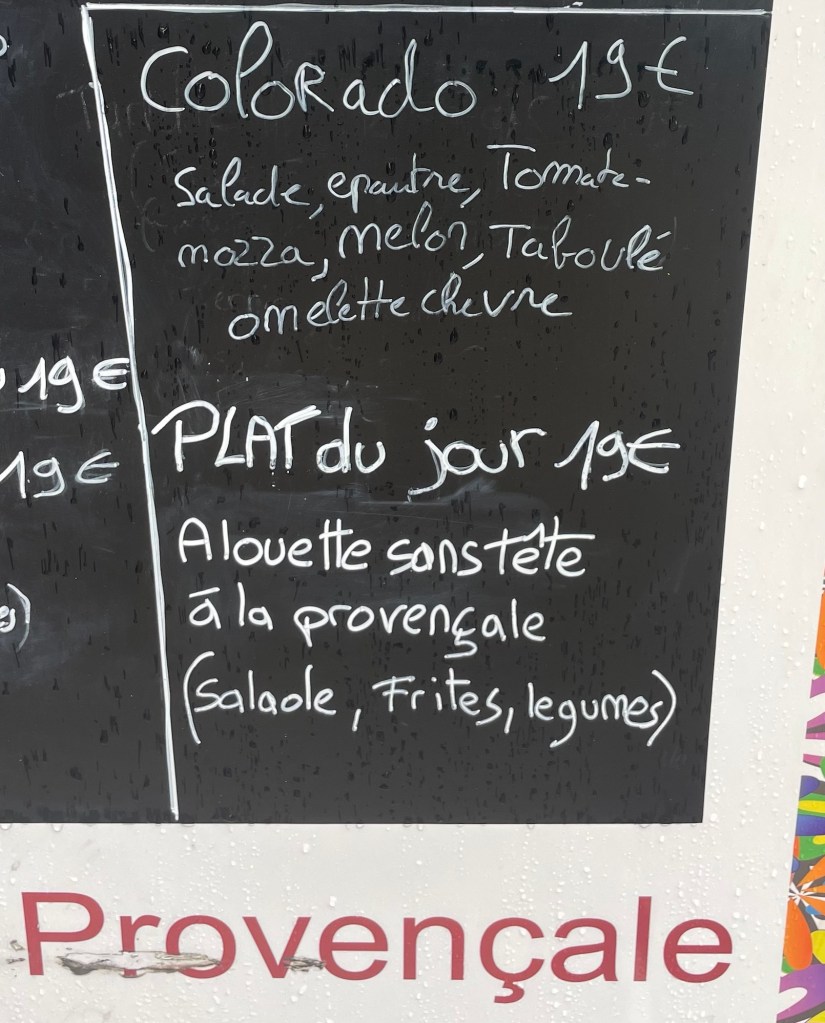 Colorado 19€
Salade, epautre, Tomate-
mozza, melon, Taboulé
omelette chèvre
19€
19€
PLAT du jour 19€
Alouette sans tête
à la provençale
(Salade, Frites, legumes)
Provençale